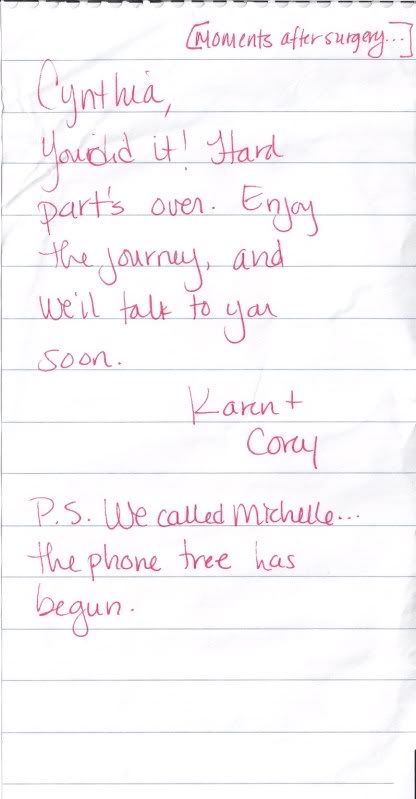 [Moments after surgery...]
Cynthia,
You did it! Hard
part's over. Enjoy
the journey, and
we'll talk to you
soon.
Karen +
Corey
P.S. We called Michelle...
the phone tree has
begun.